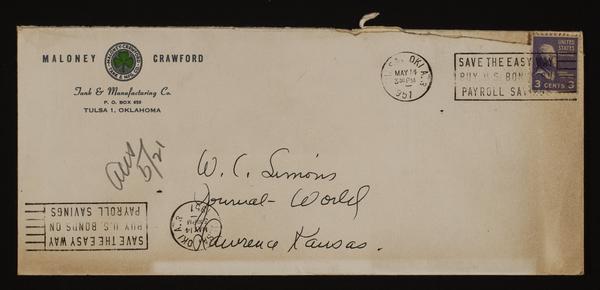 MALONEY CRAWFORD
MALONEY-CRAWFORD
TANK & MFG. CO.
Tank & Manufacturing Co.
P. O. BOX 659
TULSA 1, OKLAHOMA
TULSA, OKLA. 2
MAY 14
PM
1951
SAVE THE EASY WAY
BUY U.S. BONDS
PAYROLL SAVINGS
UNITED STATES
3 CENTS 3
Ans
5/21
W. C. Simons
Journal-World
Lawrence Kansas.
SAVE THE EASY WAY
BUY U.S. BONDS ON
PAYROLL SAVINGS
OKLA. 2
MAY 14
PM
1951